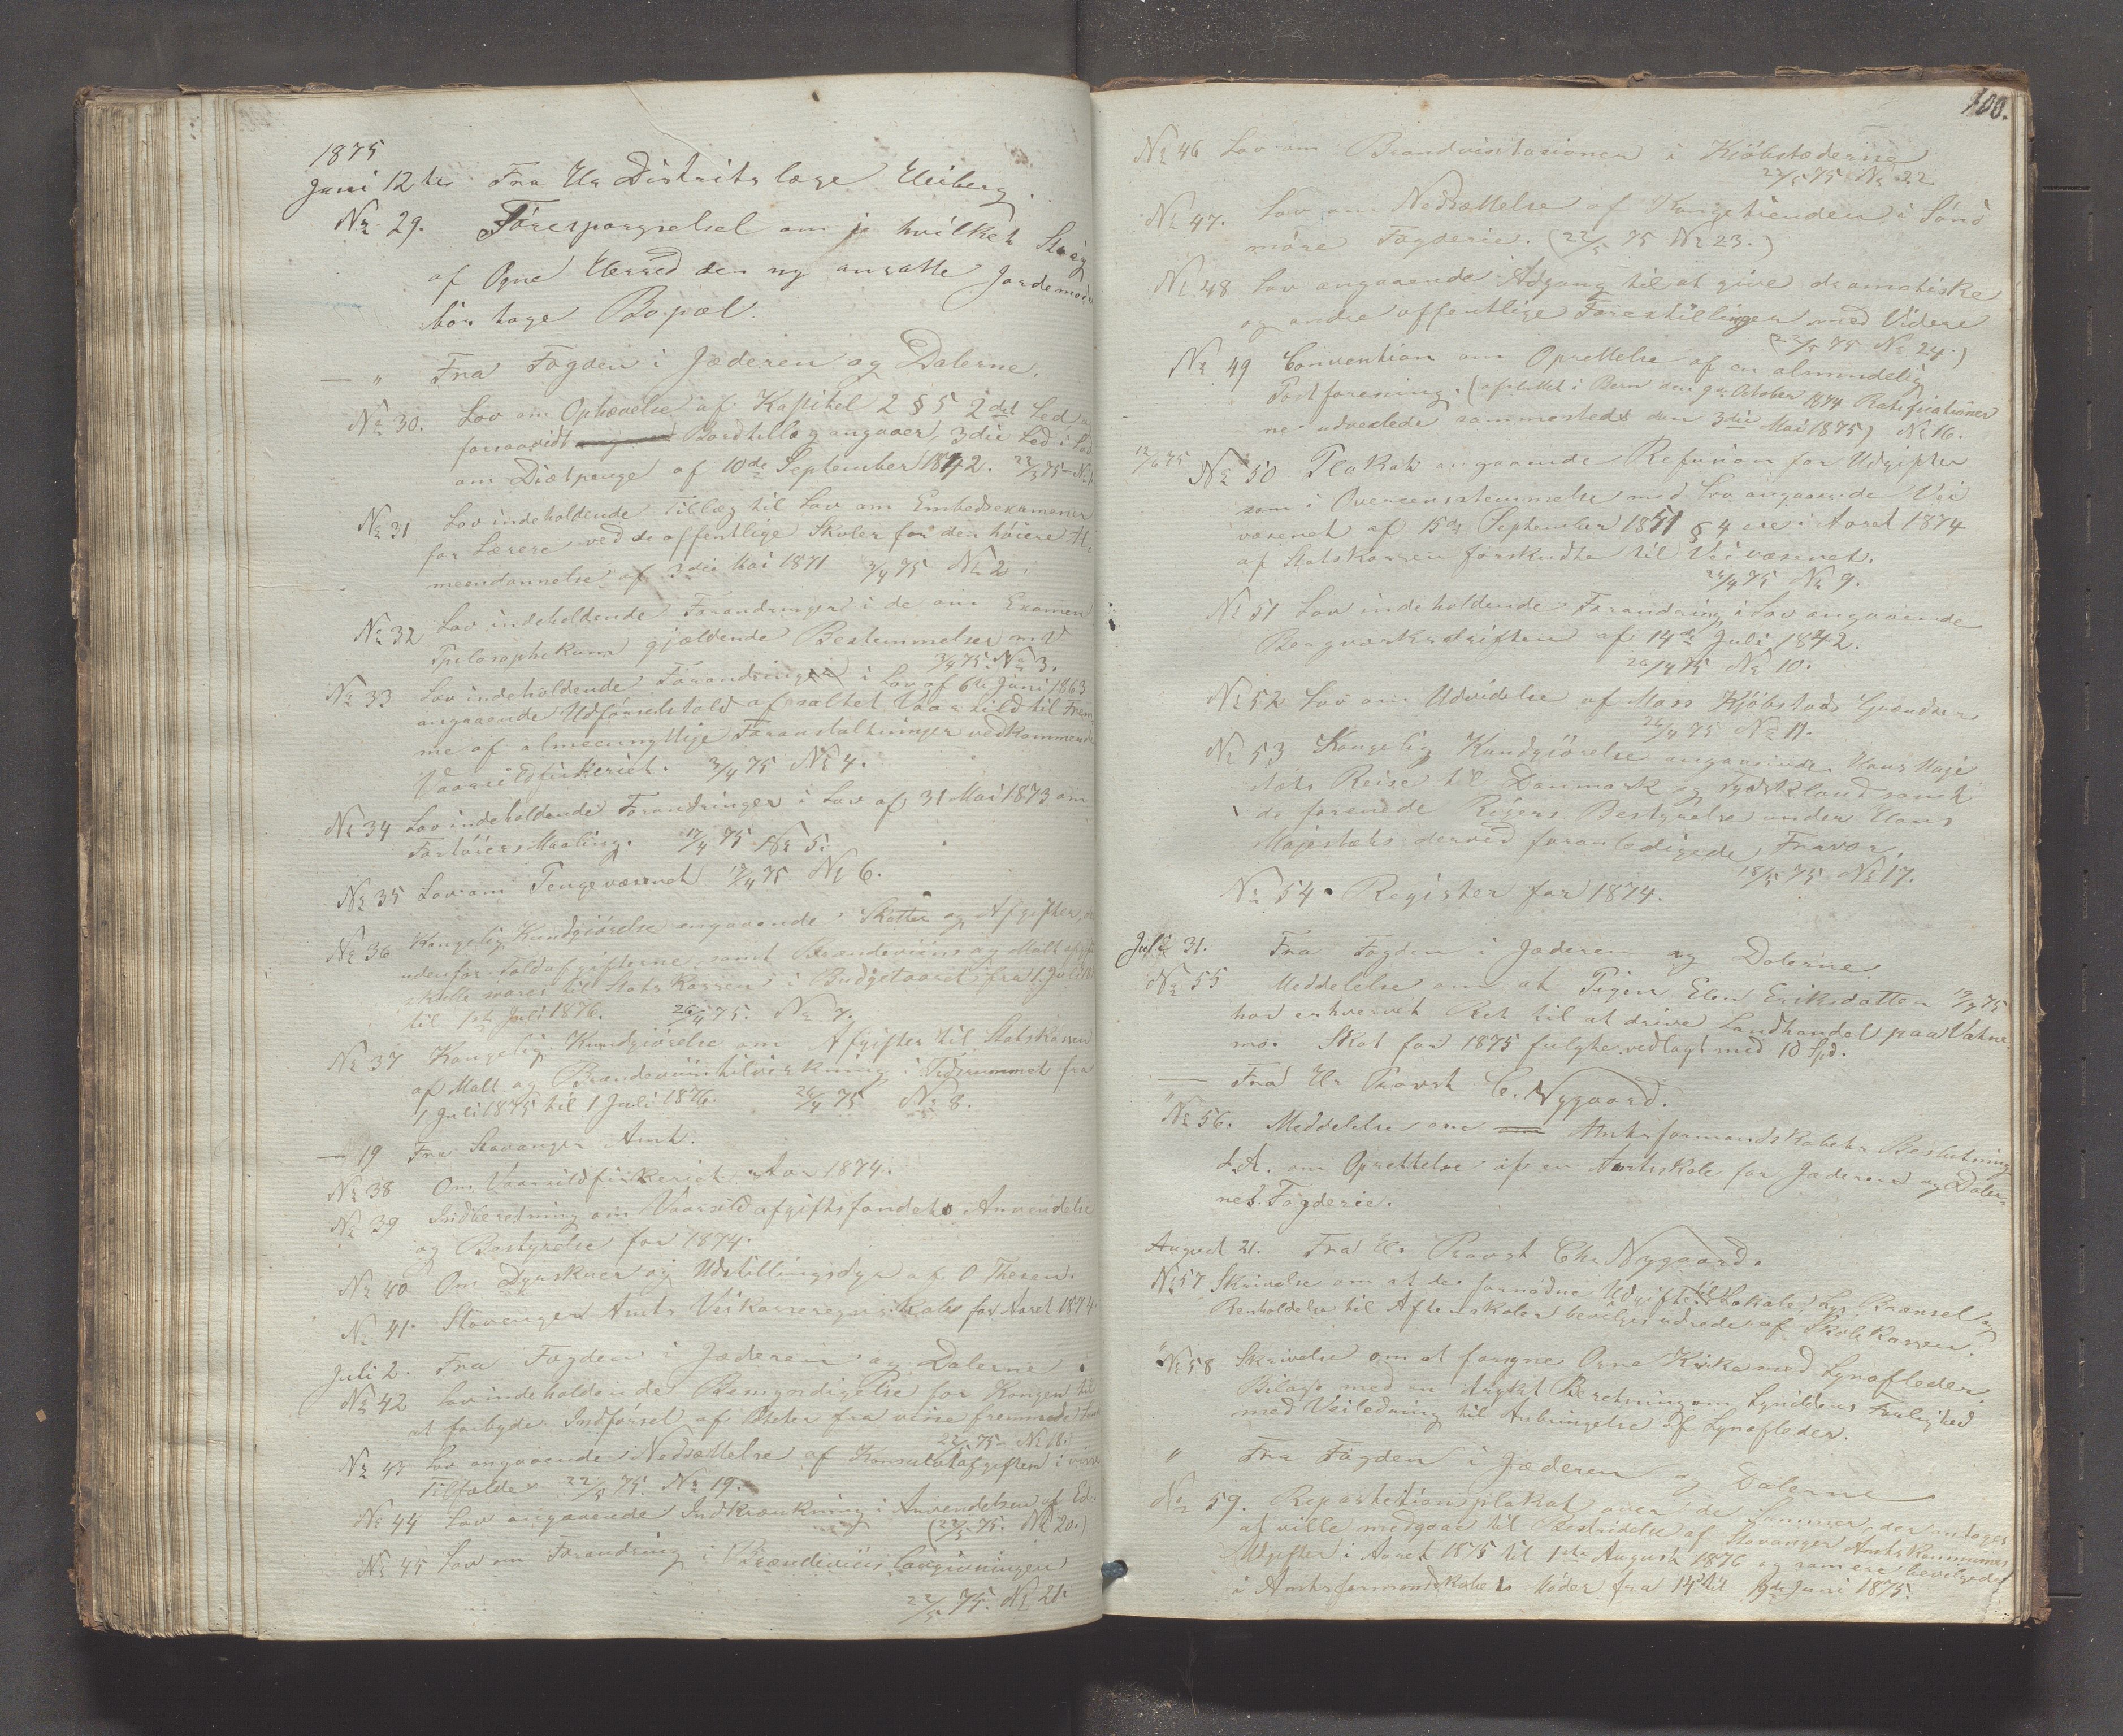 1875
Juni 12te Fra Hr Distriktslæge Heiberg.
No 29. Forespørgselsel om i hvilket Strøg
af Ogne Herred den ny ansatte Jordemoder
bør tage Bopæl.
— " Fra Fogden i Jæderen og Dalerne.
No 30. Lov om Ophævelse af Kapitel 2 § 5 2det Led,
forsaavidt Bordtillæg angaaer, 3die Led i Lov
om Diætpenge af 10de September 1842. 22/3 75 No
No 31 Lov indeholdende Tillæg til Lov om Embedsexamener
for Lærere ved de offentlige Skoler for den høiere Al-
meendannelse af 3die Mai 1871 3/4 75 No 2.
No 32 Lov indeholdende Forandringer i de om Examen
philosophicum gjældende Bestemmelser m.v.
3/4 75. No 3.
No 33 Lov indeholdende Forandringer i Lov af 6te Juni 1863
angaaende Udførselstold af saltet Vaarsild til Frem
me af almeennyttige Foranstaltninger vedkommende
Vaarsildfiskeriet. 3/4 75 No 4.
No 34 Lov indeholdende Forandringer i Lov af 31 Mai 1873 om
Fartøiers Maaling. 17/4 75 No 5.
No 35 Lov om Pengevæsenet 17/4 75 No 6.
No 36 Kongelig Kundgjørelse angaaende Skatter og Afgifter,
udenfor Toldafgifterne samt Brændeviins og Maltafgift
skulle svares til Statskassen i Budgetaaret fra 1 Juli
til 1ste Juli 1876. 26/4 75. No 7.
No 37 Kongelig Kundgjørelse om Afgifter til Statskassen
af Malt og Brændeviinstilvirkning i Tidsrummet fra
1 Juli 1875 til 1 Juli 1876. 26/4 75 No 8.
— 19 Fra Stavanger Amt.
No 38 Om Vaarsildfiskeriet Aar 1874.
No 39 Indberetning om Vaarsildafgiftsfondets Anvendelse
og Bestyrelse for 1874.
No 40 Om Dyrskuer og Udstillingsdyr af O Thesen.
No 41. Stavanger Amts Veikasseregnskab for Aaret 1874
Juli 2. Fra Fogden i Jæderen og Dalerne
No 42 Lov indeholdende Bemyndigelse for Kongen til
at forbyde Indførsel af Poteter fra visse fremmede
22/5 75 No 18.
No 43 Lov angaaende Nedsættelse af Konsulatafgiften i visse
Tilfælde 22/5 75. No 19.
No 44 Lov angaaende Indskrænkning i Anvendelsen af Ed.
(22/5 75. No 20.)
No 45 Lov om Forandring i Brændeviinslovgivningen
22/5 75. No 21.
100.
No 46 Lov om Brandvisitasionen i Kjøbstæderne
22/5 75 No 22
No 47. Lov om Nedsættelse af Kongetienden i Sønd
møre Fogderie. (22/5 75 No 23.)
No 48 Lov angaaende Adgang til at give dramatiske
og andre offentlige Forestillinger med Videre
(22/5 75 No 24.)
No 49 Convention om Oprettelse af en almindelig
Postforening. (afsluttet i Bern den 9de October 1874 Ratificationer
ne udvexlede sammesteds den 3die Mai 1875) No 16.
12/6 75 No 50 Plakat angaaende Refusion for Udgifter
som i Overeensstemmelse med Lov angaaende Vei
væsenet af 15de September 1851 § 4 ere i Aaret 1874
af Statskassen forskudte til Veivæsenet.
26/4 75 No 9.
No 51 Lov indeholdende Forandring i Lov angaaende
Bergværksdriften af 14de Juli 1842.
26/4 75 No 10.
No 52 Lov om Udvidelse af Moss Kjøbstads Grændser
26/4 75 No 11.
No 53 Kongelig Kundgjørelse angaaende Hans Maje
stæts Reise til Danmark og Tydskland samt
de forenede Rigers Bestyrelse under Hans
Majestæts derved foranledigede Fravær.
18/5 75 No 17.
No 54 Register for 1874.
Juli 31. Fra Fogden i Jæderen og Dalerne.
No 55 Meddelelse om at Pigen Elen Eriksdatter 19/7 75
har erhvervet Ret til at drive Landhandel paa Vatne-
mo. Skat for 1875 fulgte vedlagt med 10 Spd.
— Fra Hr Provst C. Nygaard.
" No 56. Meddelelse om Amtsformandskabets Beslutning
d.A. om Oprettelse af en Amtsskole for Jæderens og Daler-
nes Fogderie.
August 21. Fra Hr Provst Chr Nygaard.
No 57 Skrivelse om at de fornødne Udgifter til Lokale, Lys Brænsel og
Renholdelse til Aftenskoler bevilges udrede af Skolekassen.
" No 58 Skrivelse om at forsyne Ogne Kirke med Lynafleder
Bilage med en trykt Beretning om Lynildens Farlighed
med Veiledning til Anbringelse af Lynafleder.
" Fra Fogden i Jæderen og Dalerne
No 59. Repartitionsplakat over de Summer, der antages
at ville medgaae til Bestridelse af Stavanger Amtskommunes
Udgifter i Aaret 1875 til 1ste August 1876 og som ere bevilgede
i Amtsformandskabets Møder fra 14 til 19de Juni 1875.